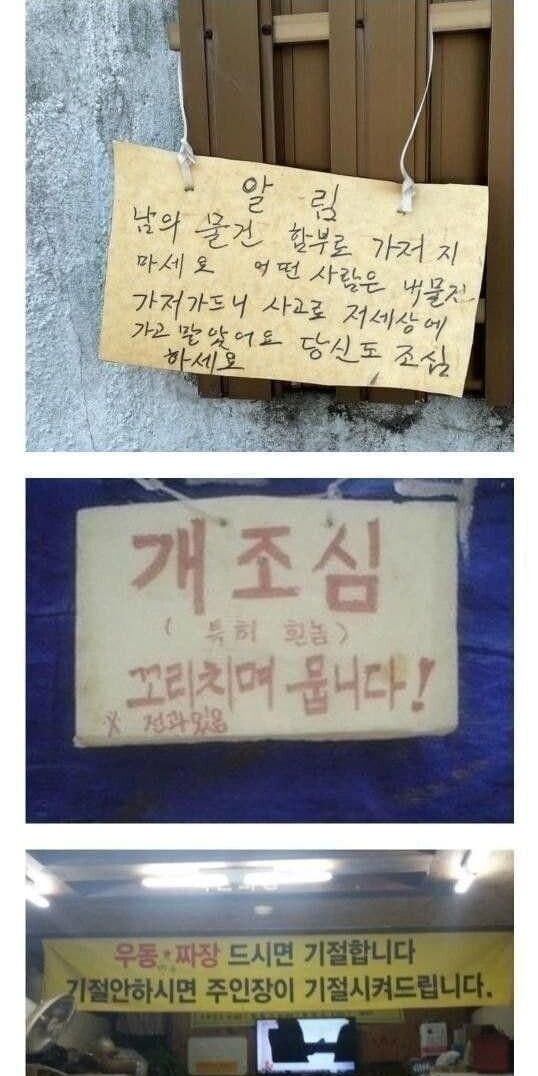 알 림
남의 물건 함부로 가저 지
마세요 어떤 사람은 내물건
가저가드니 사고로 저세상에
가고 말았어요 당신도 조심
하세요
개조심
( 특히 흰놈 )
꼬리치며 뭅니다!
※ 전과있음
우동·짜장 드시면 기절합니다
기절안하시면 주인장이 기절시켜드립니다.